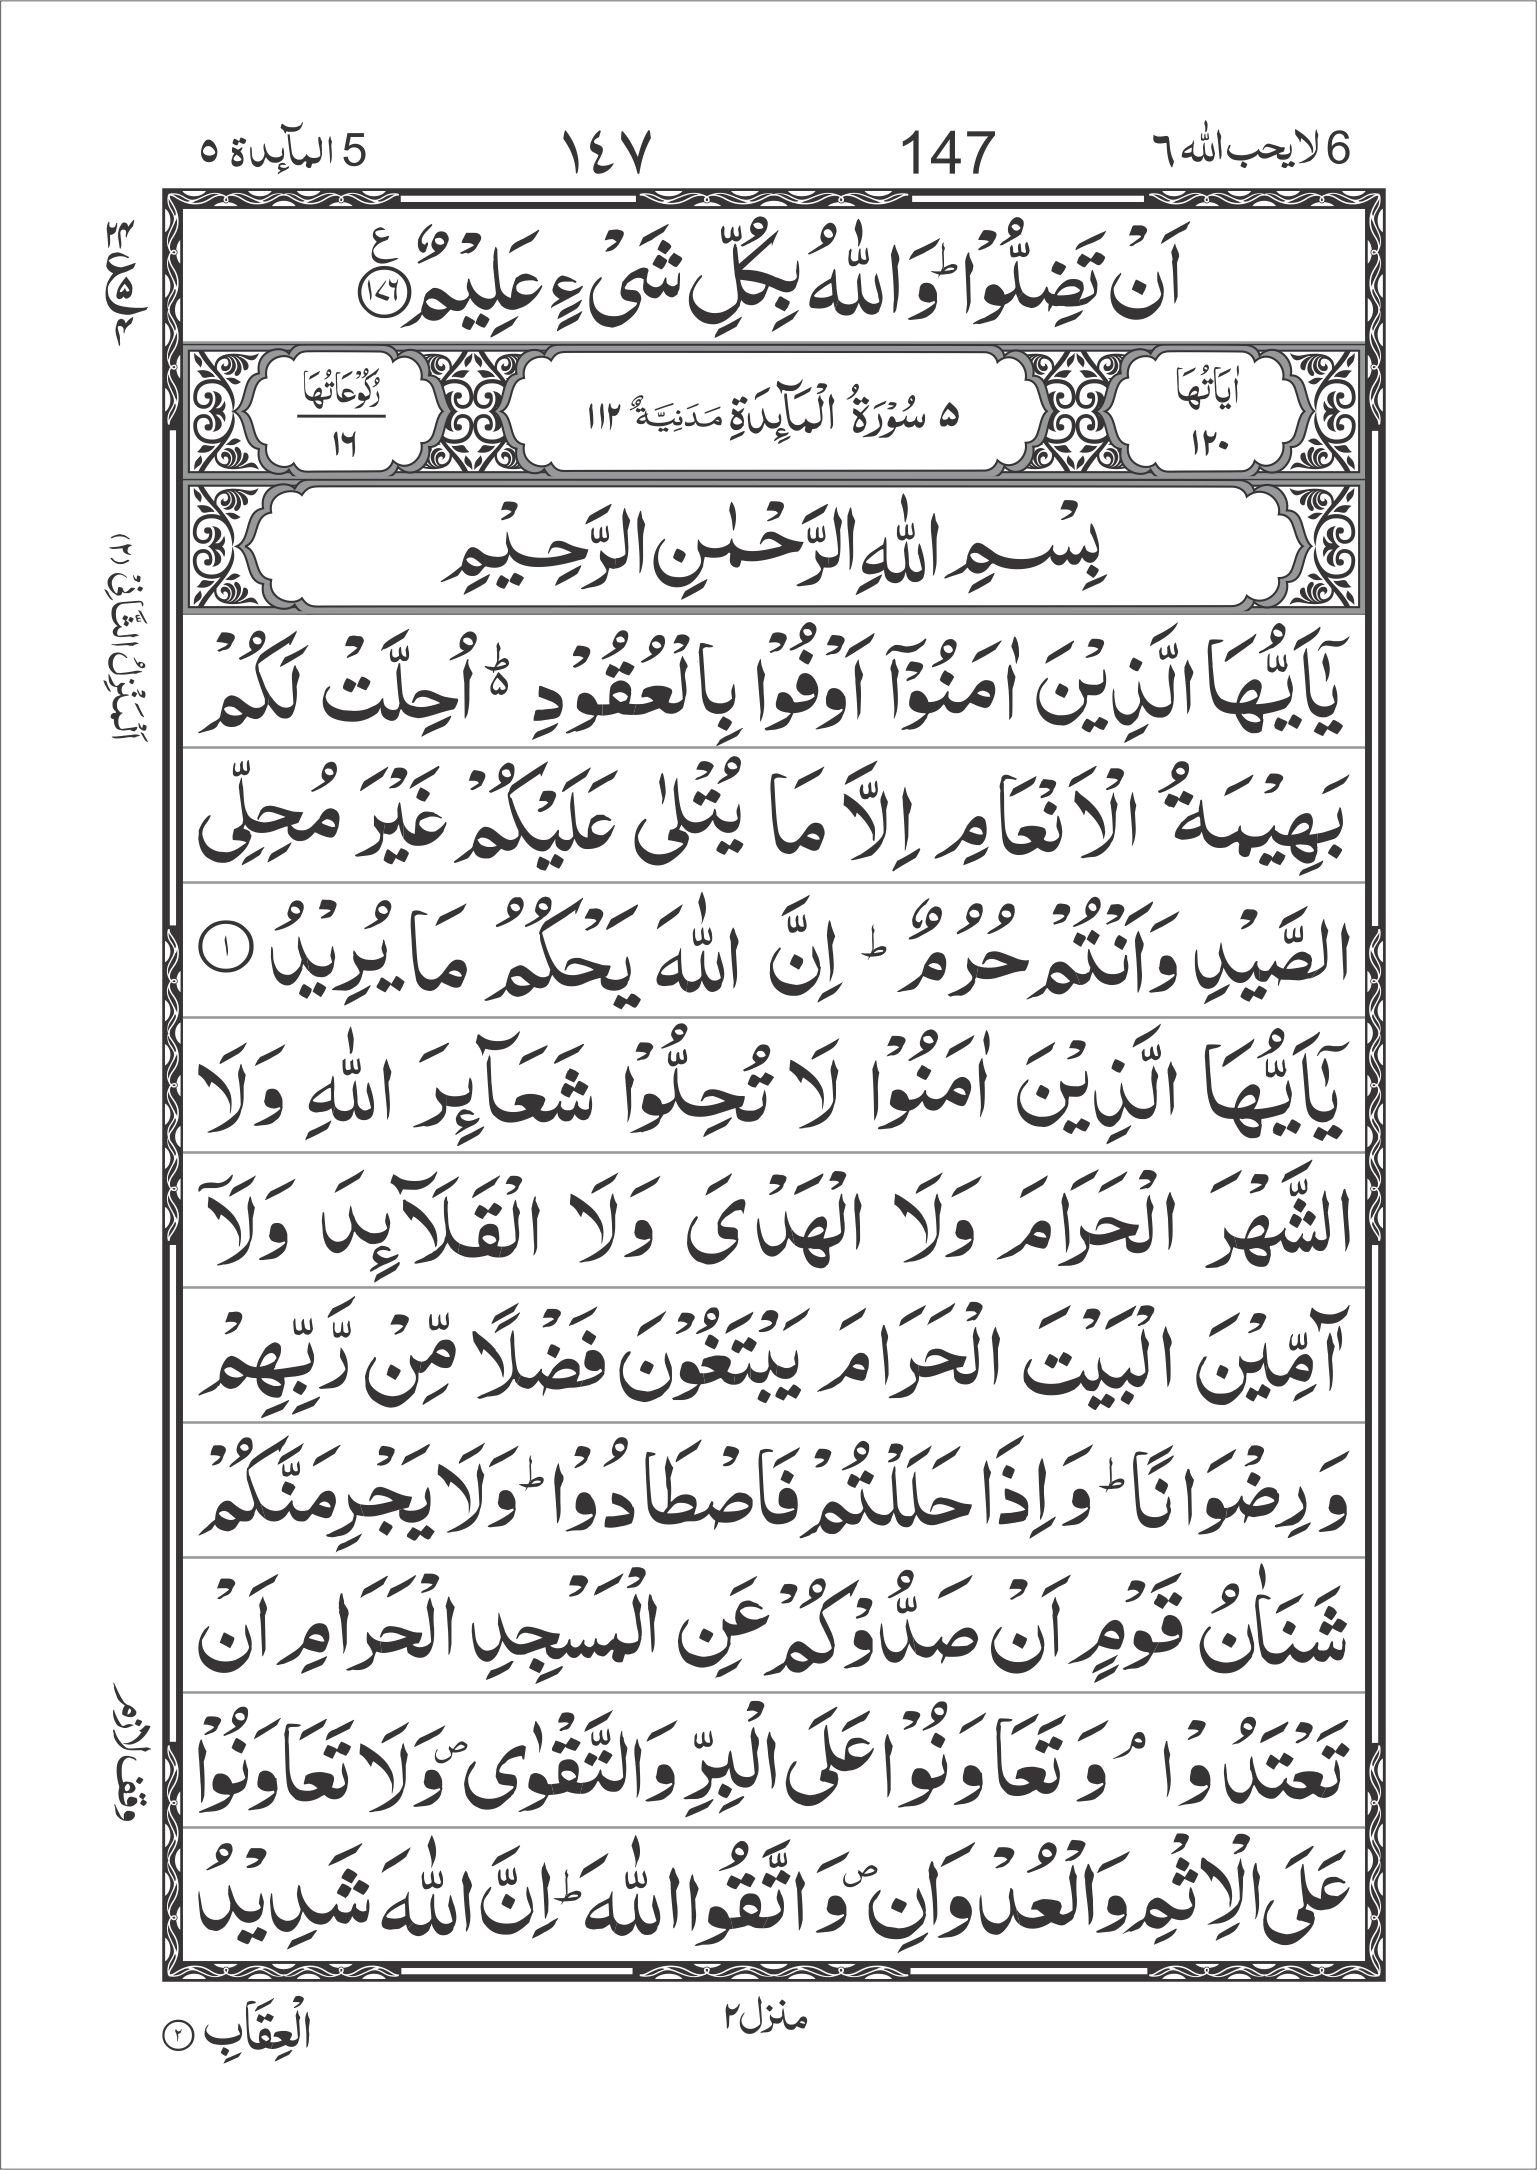 6 لا یحب اللہ ٦ 147 ١٤٧ 5 المآئدۃ ۵
اَنْ تَضِلُّوْا ؕ وَاللّٰهُ بِكُلِّ شَیْءٍ عَلِیْمٌ ۠ ﴿۱۷۶﴾ ع
اٰیَاتُهَا ۱۲۰ ۵ سُوْرَةُ الْمَآئِدَةِ مَدَنِیَّةٌ ۱۱۲ رُكُوْعَاتُهَا ۱۶
بِسْمِ اللّٰهِ الرَّحْمٰنِ الرَّحِیْمِ
یٰۤاَیُّهَا الَّذِیْنَ اٰمَنُوْۤا اَوْفُوْا بِالْعُقُوْدِ ؕ۵ اُحِلَّتْ لَكُمْ
بَهِیْمَةُ الْاَنْعَامِ اِلَّا مَا یُتْلٰی عَلَیْكُمْ غَیْرَ مُحِلِّی
الصَّیْدِ وَاَنْتُمْ حُرُمٌ ؕ اِنَّ اللّٰهَ یَحْكُمُ مَا یُرِیْدُ ﴿۱﴾
یٰۤاَیُّهَا الَّذِیْنَ اٰمَنُوْا لَا تُحِلُّوْا شَعَآئِرَ اللّٰهِ وَلَا
الشَّهْرَ الْحَرَامَ وَلَا الْهَدْیَ وَلَا الْقَلَآئِدَ وَلَاۤ
آٰمِّیْنَ الْبَیْتَ الْحَرَامَ یَبْتَغُوْنَ فَضْلًا مِّنْ رَّبِّهِمْ
وَرِضْوَانًا ؕ وَاِذَا حَلَلْتُمْ فَاصْطَادُوْا ؕ وَلَا یَجْرِمَنَّكُمْ
شَنَاٰنُ قَوْمٍ اَنْ صَدُّوْكُمْ عَنِ الْمَسْجِدِ الْحَرَامِ اَنْ
تَعْتَدُوْا ۘ وَتَعَاوَنُوْا عَلَی الْبِرِّ وَالتَّقْوٰی ۪ وَلَا تَعَاوَنُوْا
عَلَی الْاِثْمِ وَالْعُدْوَانِ ۪ وَاتَّقُوا اللّٰهَ ؕ اِنَّ اللّٰهَ شَدِیْدُ
منزل۲
الْعِقَابِ ﴿۲﴾
اَلْمَنْزِلُ الثَّانِیْ (۲)
وقف لازم